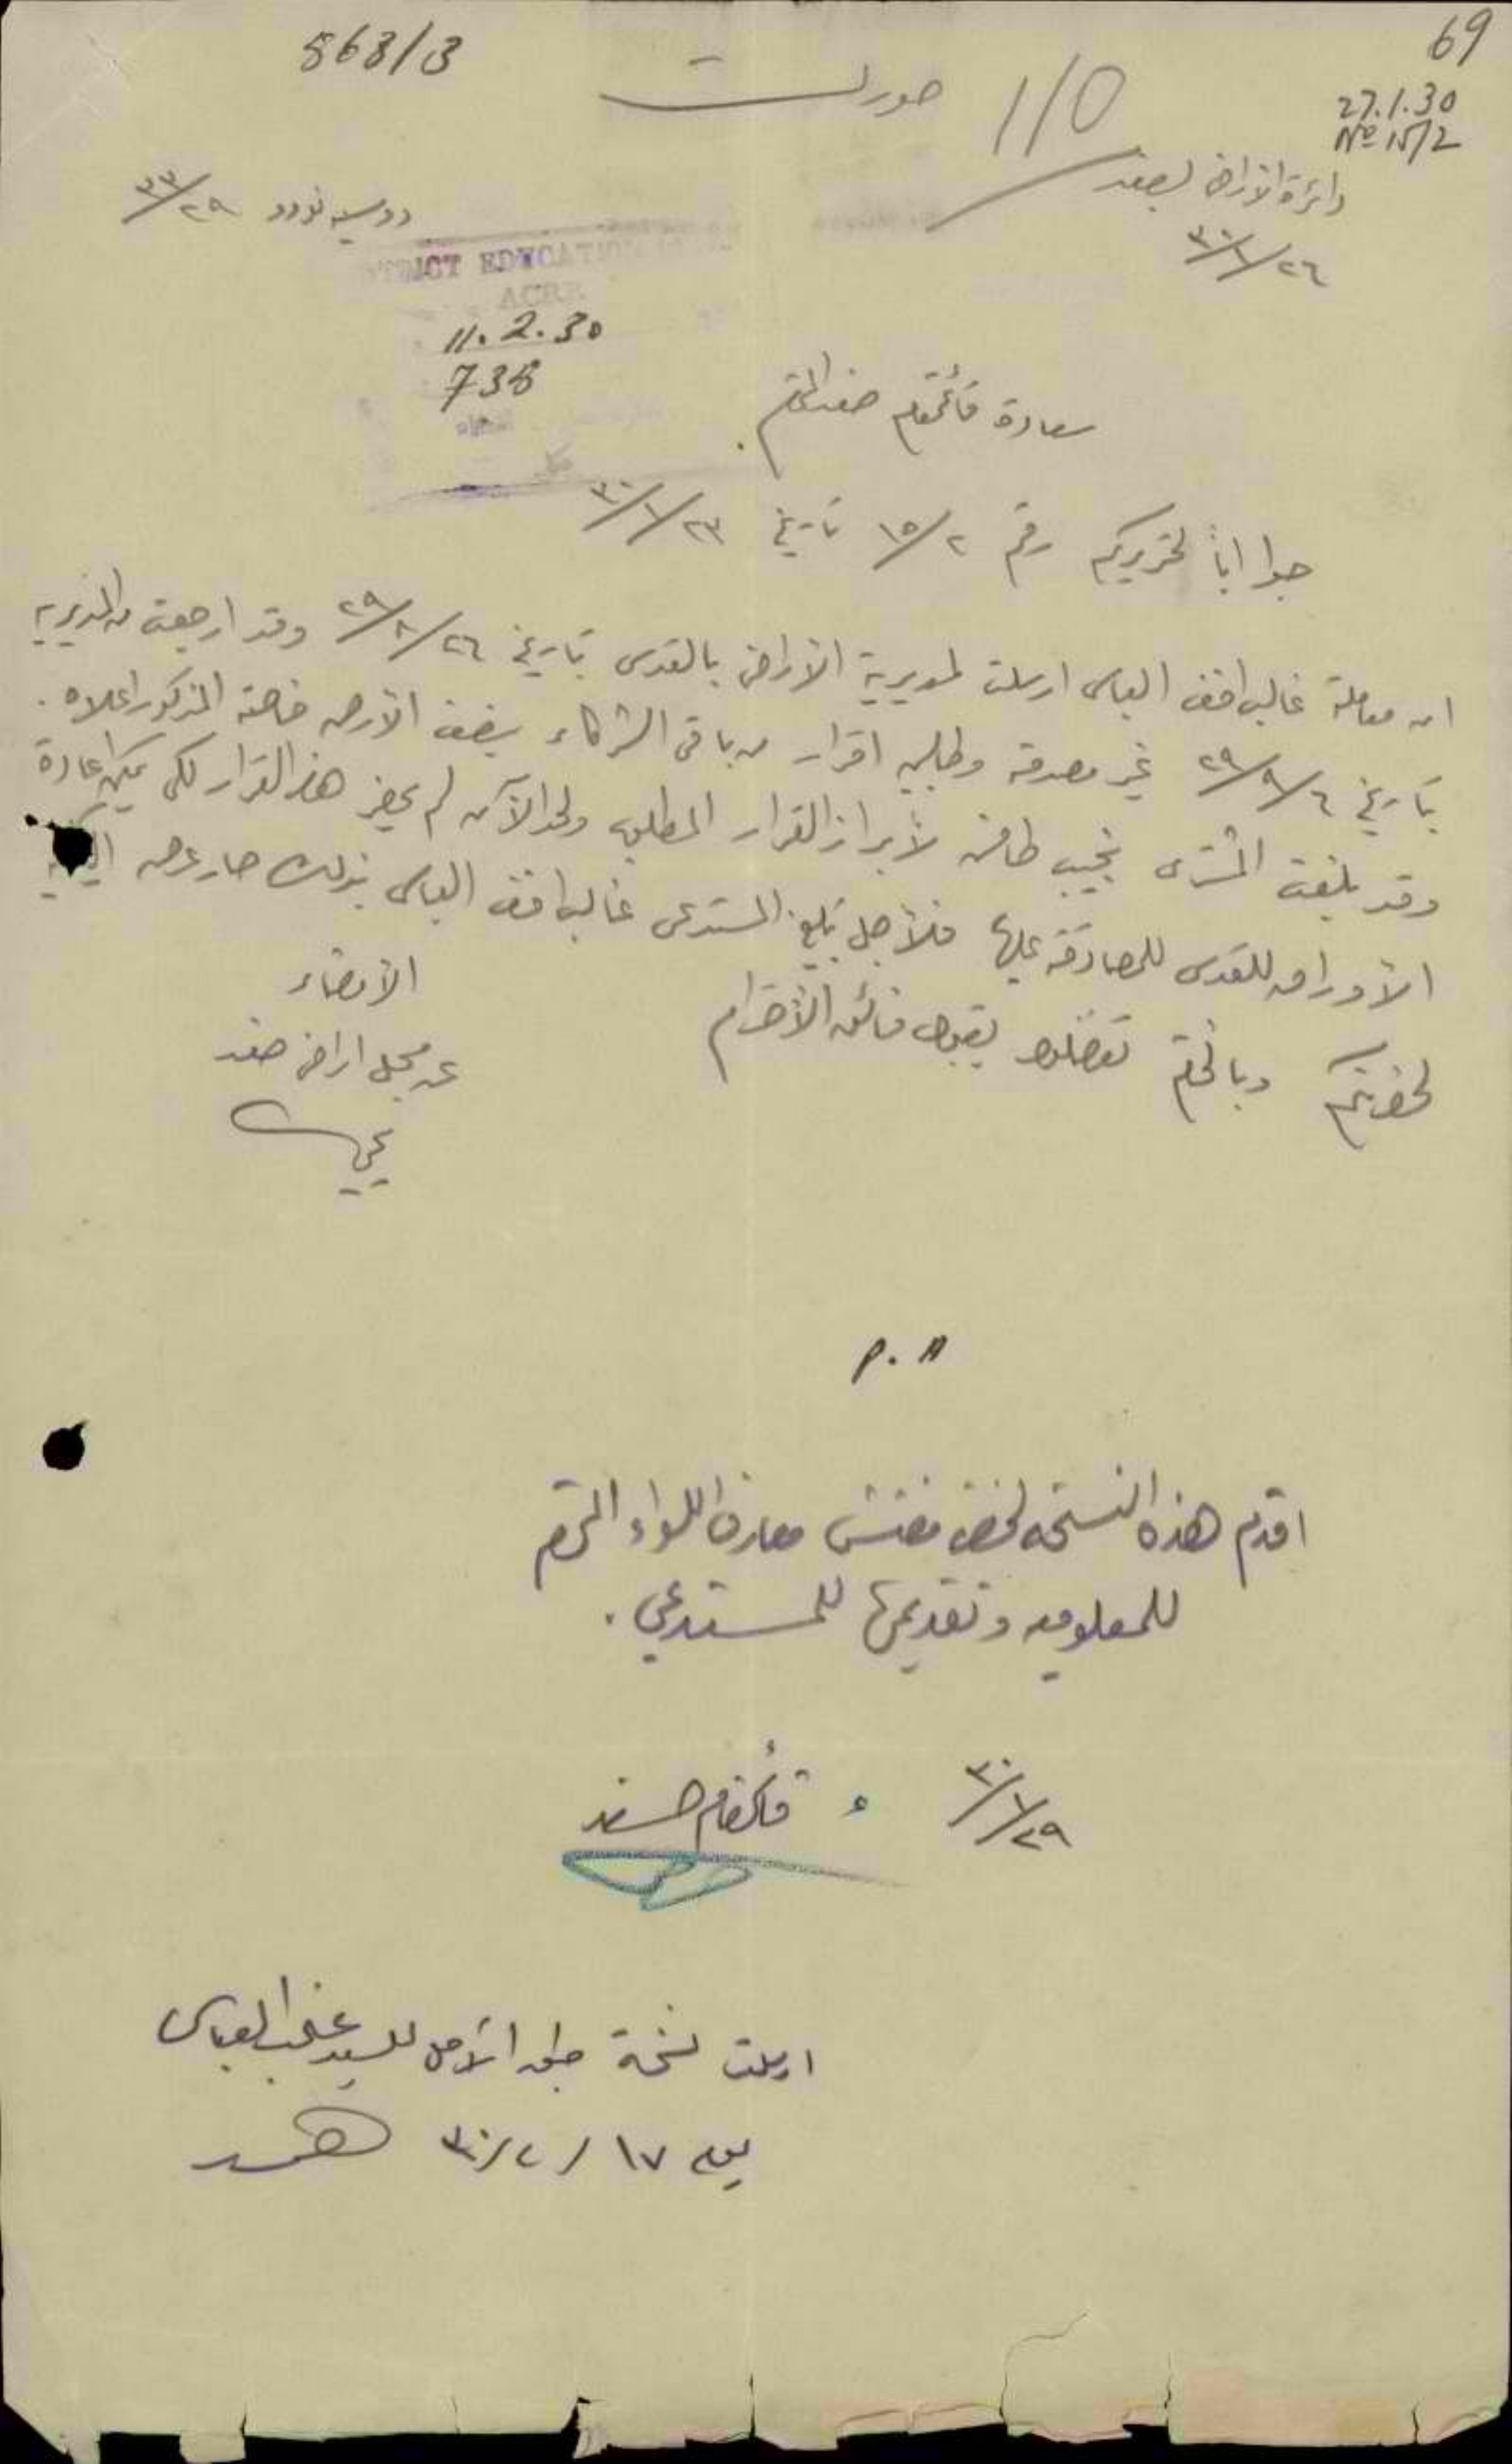 69
563/3
صورت
110
27.1.30
No 15/2
دائرة الأراضي بصفد
٢٦/١/٣٠
دوسيه نورو ٣٣/٢٩
DISTRICT EDUCATION
ACRE
11.2.30
735
سعادة قائمقام صفد المحترم.
جواباً لتحريركم رقم ١٥/٢ تاريخ ٢٣/١/٣٠
ان معاملة غالب افندي العباسي ارسلت لمديرية الأراضي بالقدس بتاريخ ٢٦/٨/٢٩ وقد ارجعت من المديرية
بتاريخ ٦/٩/٢٩ غير مصدقة وطلب اقرار من باقي الشركاء بنصف الأرض خاصة المذكور اعلاه.
وقد بلغت المشتري نجيب لأبراز القرار المطلوب ولحد الآن لم يحضر هذا القرار لكي يمكن اعادة
الأوراق للقدس للمصادقة عليها فلأجل تبليغ المستدعي غالب افندي العباسي بذلك صار عرض
لحضرتكم وبالختم تفضلوا بقبول فائق الأحترام
الأمضاء
عن مسجل اراضي صفد
P.A
اقدم هذه النسخة لحضرة مفتش معارف اللواء المحترم
للمعلومية وتقديمها للمستدعي.
٢٩/١/٣٠
قائمقام صفد
ارسلت نسخة طبق الأصل للسيد غالب العباسي
يوم ١٧/٢/٣٠